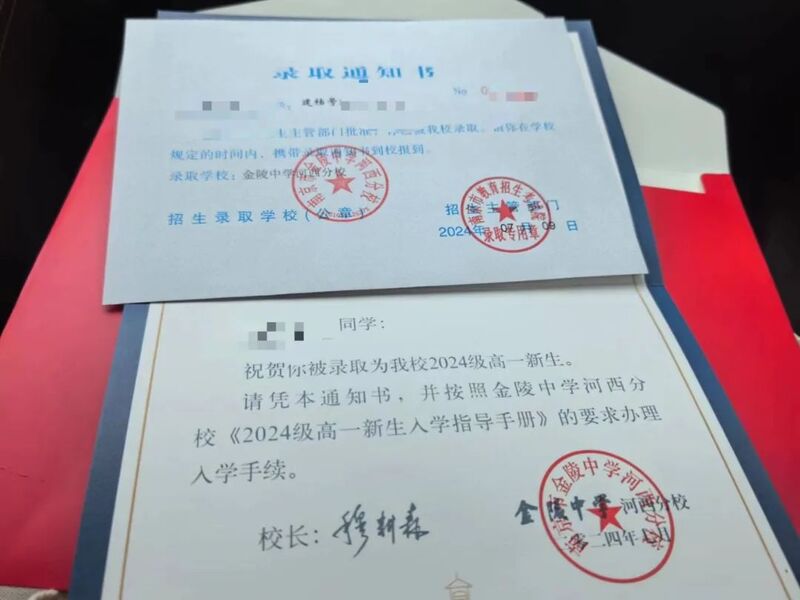 录取通知书
No 0
建档号
主管部门批准, 被我校录取。请你在学校
规定的时间内、携带录取通知书到校报到。
录取学校：金陵中学河西分校
南京市金陵中学河西分校
招生录取学校(公章)
招 主管部门
2024年 07 月 09 日
南京市教育招生考试院
录取专用章
同学：
祝贺你被录取为我校2024级高一新生。
请凭本通知书，并按照金陵中学河西分
校《2024级高一新生入学指导手册》的要求办理
入学手续。
校长：
金陵中学 河西分校
二四年七月
南京市金陵中学河西分校